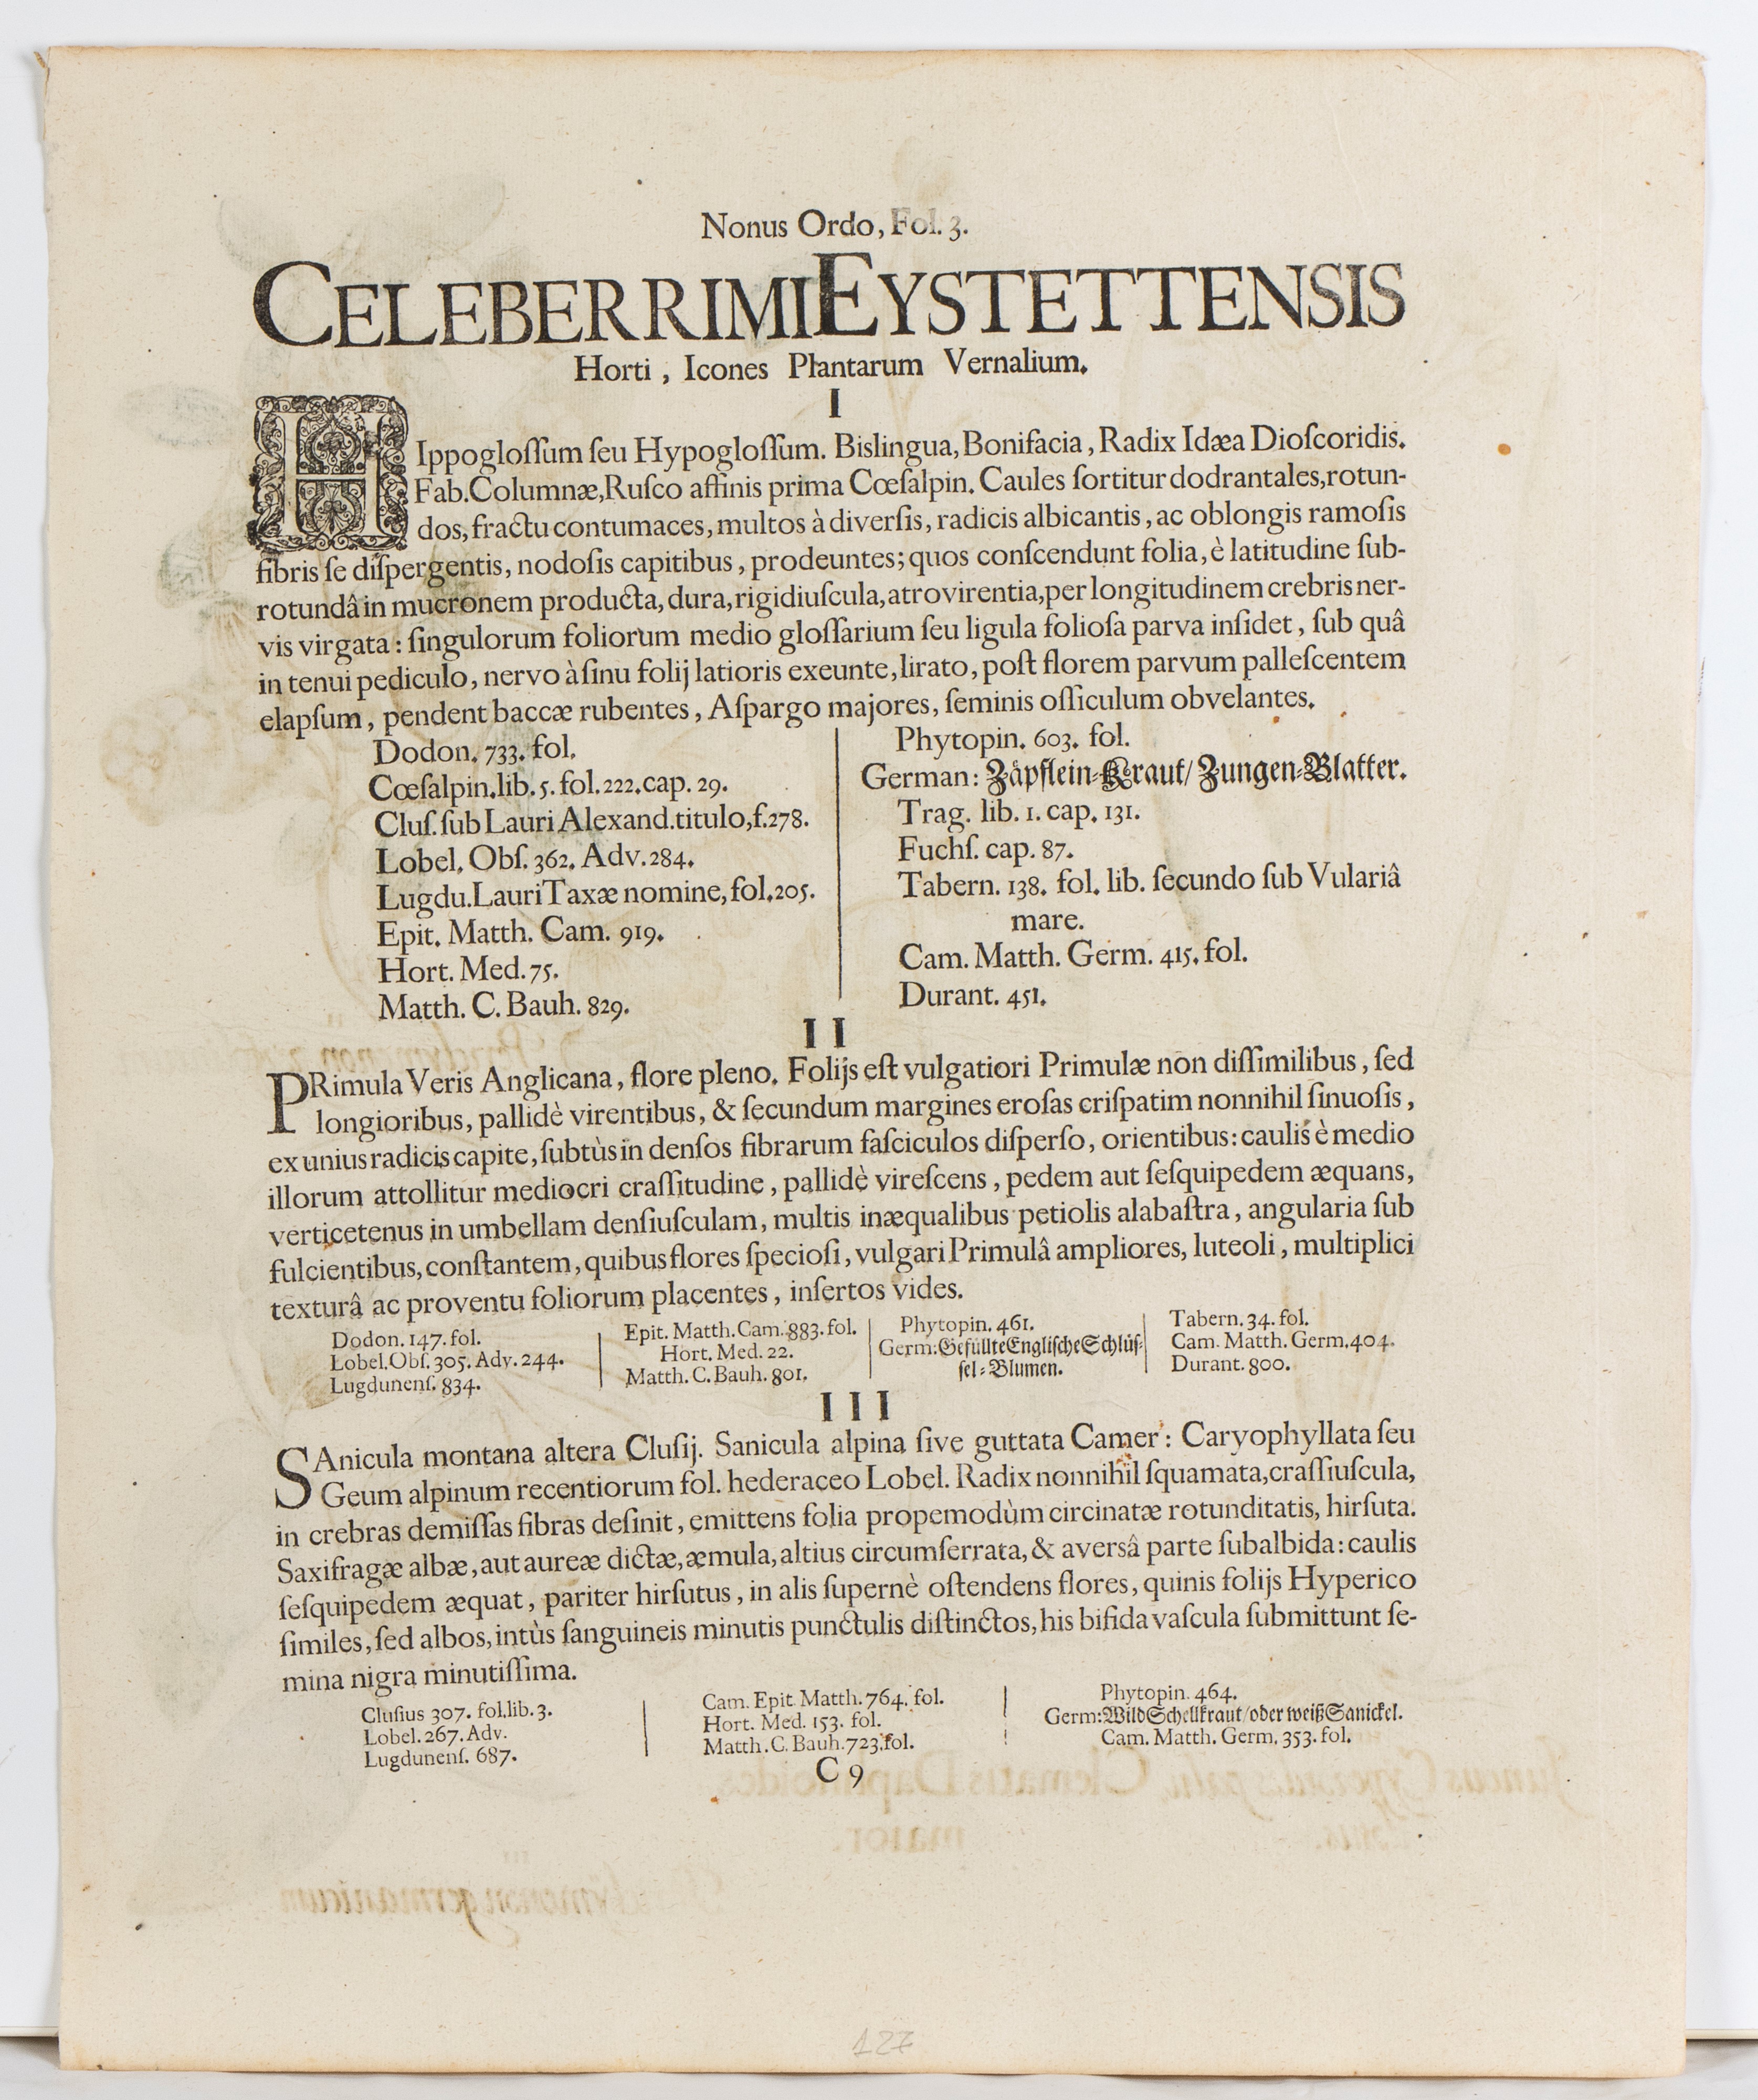 Nonus Ordo, Fol. 3.
CELEBERRIMI EYSTETTENSIS
Horti, Icones Plantarum Vernalium.
I
HIppogloſſum ſeu Hypogloſſum. Bislingua, Bonifacia, Radix Idæa Dioſcoridis.
Fab. Columnæ, Ruſco affinis prima Cœſalpin. Caules ſortitur dodrantales, rotun-
dos, fractu contumaces, multos à diverſis, radicis albicantis, ac oblongis ramoſis
fibris ſe diſpergentis, nodoſis capitibus, prodeuntes; quos conſcendunt folia, è latitudine ſub-
rotundâ in mucronem producta, dura, rigidiuſcula, atrovirentia, per longitudinem crebris ner-
vis virgata: ſingulorum foliorum medio gloſſarium ſeu ligula folioſa parva inſidet, ſub quâ
in tenui pediculo, nervo à ſinu folij latioris exeunte, lirato, poſt florem parvum palleſcentem
elapſum, pendent baccæ rubentes, Aſpargo majores, ſeminis oſſiculum obvelantes.
Dodon. 733. fol.
Cœſalpin. lib. 5. fol. 222. cap. 29.
Cluſ. ſub Lauri Alexand. titulo, f. 278.
Lobel. Obſ. 362. Adv. 284.
Lugdu. Lauri Taxæ nomine, fol. 205.
Epit. Matth. Cam. 919.
Hort. Med. 75.
Matth. C. Bauh. 829.
Phytopin. 603. fol.
German: Zäpflein-Kraut/ Zungen-Blatter.
Trag. lib. 1. cap. 131.
Fuchſ. cap. 87.
Tabern. 138. fol. lib. ſecundo ſub Vulariâ
mare.
Cam. Matth. Germ. 415. fol.
Durant. 451.
II
PRimula Veris Anglicana, flore pleno. Folijs eſt vulgatiori Primulæ non diſſimilibus, ſed
longioribus, pallidè virentibus, & ſecundum margines eroſas criſpatim nonnihil ſinuoſis,
ex unius radicis capite, ſubtùs in denſos fibrarum faſciculos diſperſo, orientibus: caulis è medio
illorum attollitur mediocri craſſitudine, pallidè vireſcens, pedem aut ſeſquipedem æquans,
verticetenus in umbellam denſiuſculam, multis inæqualibus petiolis alabaſtra, angularia ſub
fulcientibus, conſtantem, quibus flores ſpecioſi, vulgari Primulâ ampliores, luteoli, multiplici
texturâ ac proventu foliorum placentes, inſertos vides.
Dodon. 147. fol.
Lobel. Obſ. 305. Adv. 244.
Lugdunenſ. 834.
Epit. Matth. Cam. 883. fol.
Hort. Med. 22.
Matth. C. Bauh. 801.
Phytopin. 461.
Germ: Gefüllte Engliſche Schlüſ-
ſel-Blumen.
Tabern. 34. fol.
Cam. Matth. Germ. 404.
Durant. 800.
III
SAnicula montana altera Cluſij. Sanicula alpina ſive guttata Camer: Caryophyllata ſeu
Geum alpinum recentiorum fol. hederaceo Lobel. Radix nonnihil ſquamata, craſſiuſcula,
in crebras demiſſas fibras deſinit, emittens folia propemodùm circinatæ rotunditatis, hirſuta.
Saxifragæ albæ, aut aureæ dictæ, æmula, altius circumſerrata, & averſâ parte ſubalbida: caulis
ſeſquipedem æquat, pariter hirſutus, in alis ſupernè oſtendens flores, quinis folijs Hyperico
ſimiles, ſed albos, intùs ſanguineis minutis punctulis diſtinctos, his bifida vaſcula ſubmittunt ſe-
mina nigra minutiſſima.
Cluſius 307. fol. lib. 3.
Lobel. 267. Adv.
Lugdunenſ. 687.
Cam. Epit. Matth. 764. fol.
Hort. Med. 153. fol.
Matth. C. Bauh. 723. fol.
Phytopin. 464.
Germ: Wild Schellkraut/ oder weiß Sanickel.
Cam. Matth. Germ. 353. fol.
C 9
127